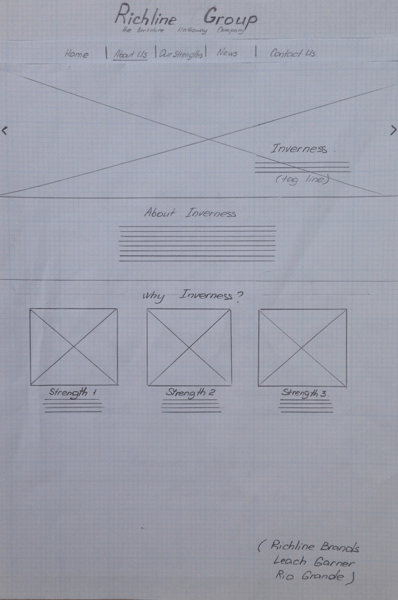 Richline Group
the Berkshire Hathaway Company
Home | About Us | Our Strengths | News | Contact Us
<
>
Inverness
(tag line)
About Inverness
Why Inverness?
Strength 1 Strength 2 Strength 3
( Richline Brands
Leach Garner
Rio Grande )